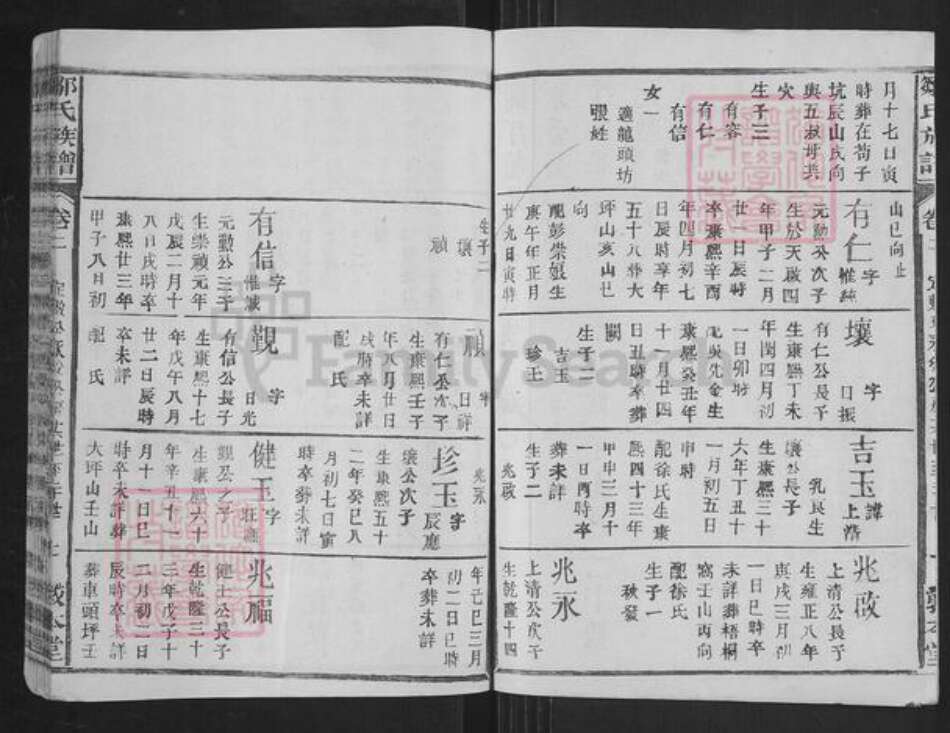 鄒氏族譜
月十七日寅
時葬在荀子
坑辰山戌向
與五叔母共
穴
生子三
有容
有仁
有信
女一
適龍頭坊
張姓
山巳向止
有仁 字惟純
元勳公次子
生於天啟四
年甲子二月
廿一日辰時
卒康熙辛酉
年四月初七
日辰時享年
五十八葬大
坪山亥山巳
向
配彭榮娘生
庚午年正月
廿九日寅時
壤 字日振
有仁公長子
生康熙丁未
年閏四月初
一日卯時
配吳先金生
康熙癸丑年
十一月廿四
日丑時卒葬
闕
生子二
吉玉
珍玉
吉玉 諱上清
乳民生
壤公長子
生康熙三十
六年丁丑十
一月初五日
申時
配徐氏生康
熙四十三年
甲申三月十
一日丙時卒
葬未詳
生子二
兆啟
兆啟
上清公長子
生雍正八年
庚戌三月初
一日巳時卒
未詳葬梧桐
窩壬山丙向
配徐氏
生子一
秋發
兆永
上清公次子
生乾隆十四
鄒氏族譜
卷二
生子二
壤
禎
有信 字惟誠
元勳公三子
生崇禎元年
戊辰二月十
八日戌時卒
康熙廿三年
甲子八月初
禎 字日祥
有仁公次子
生康熙壬子
年八月廿日
戌時卒未詳
配氏
觀 字日光
有信公長子
生康熙十七
年戊午八月
廿二日辰時
卒未詳
配氏
兆永
珍玉 字辰應
壤公次子
生康熙五十
二年癸巳八
月初七日寅
時卒葬未詳
健玉 字旺應
觀公之子
生康熙六十
年辛丑十一
月十一日巳
時卒未詳葬
大坪山壬山
年己巳三月
初二日巳時
卒葬未詳
兆福
健玉公長子
生乾隆三十
三年戊子十
二月初二日
辰時卒未詳
葬車頭坪壬